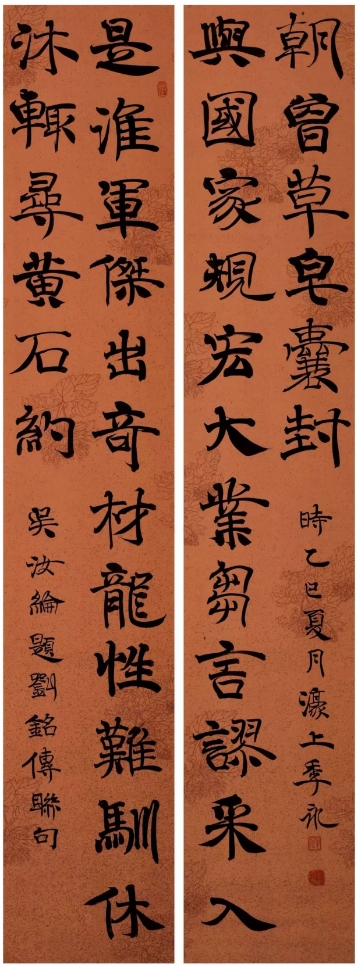 與國家規宏大業芻言謬采入
朝曾草皂囊封
時乙巳夏月濠上季永
是淮軍傑出奇材龍性難馴休
沐輒尋黃石約
吳汝綸題劉銘傳聯句